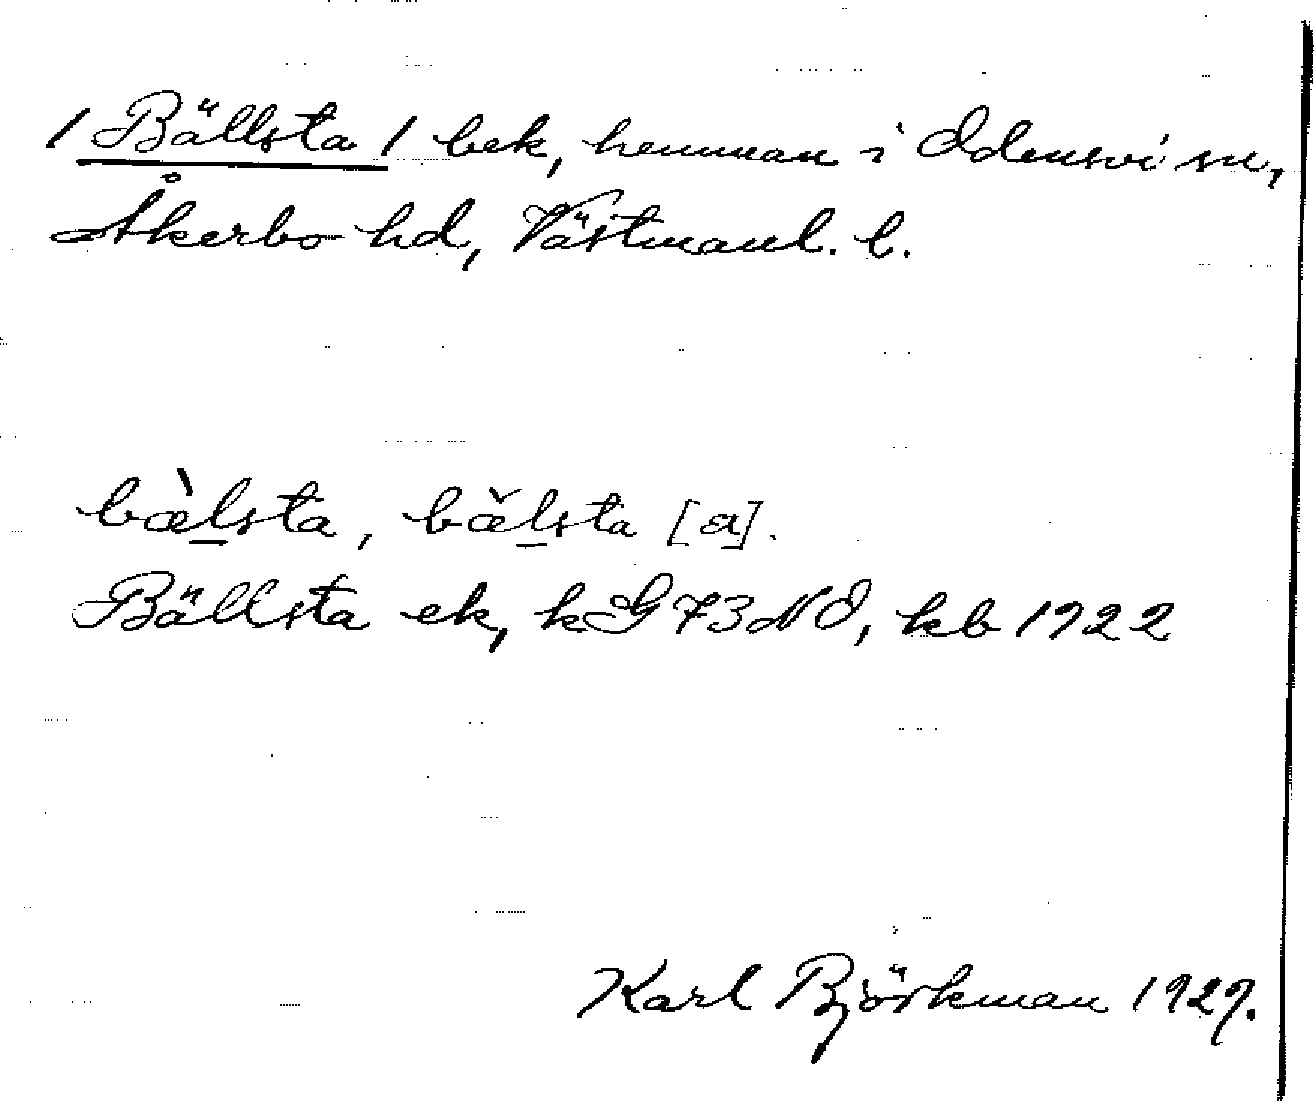 / Bällsta / bek, hemman i Odensvi sn,
Åkerbo hd, Västmanl. l.
bæ̀lsta, bæ̆lsta [a].
Bällsta ek, kG 73 NO, kb 1922
Karl Björkman 1927.